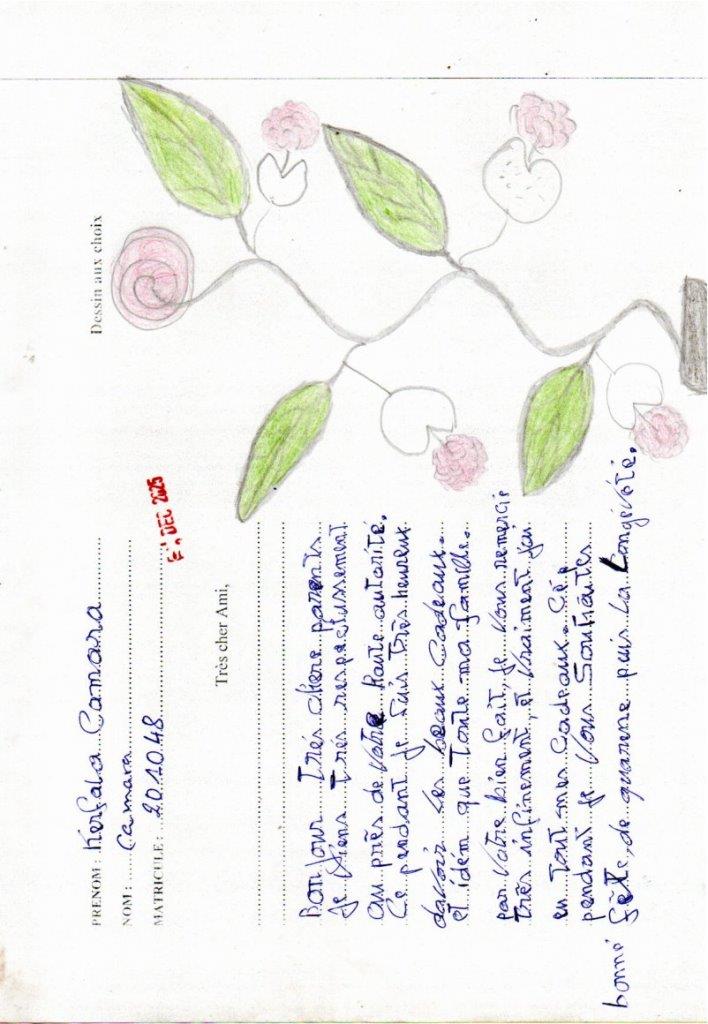 PRENOM : Kerfala Camara
NOM : Camara
MATRICULE : 201048
DEC 2025
Dessin aux choix
Très cher Ami,
Bonjour Très chère parents
Je Viens Très respectussement
au près de Votre Haute autorité.
Ce pendant Je suis Très heureux
davoir les beaux Cadeaux.
et idém que Toute ma famille.
par Votre bien fait, Je Vous remercie
Très infiniment, et Vraiment j'ai
eu Tout mes Cadeaux. Cep
pendant Je Vous Souhaites
bonné fête, de quarene puis La Longévité.